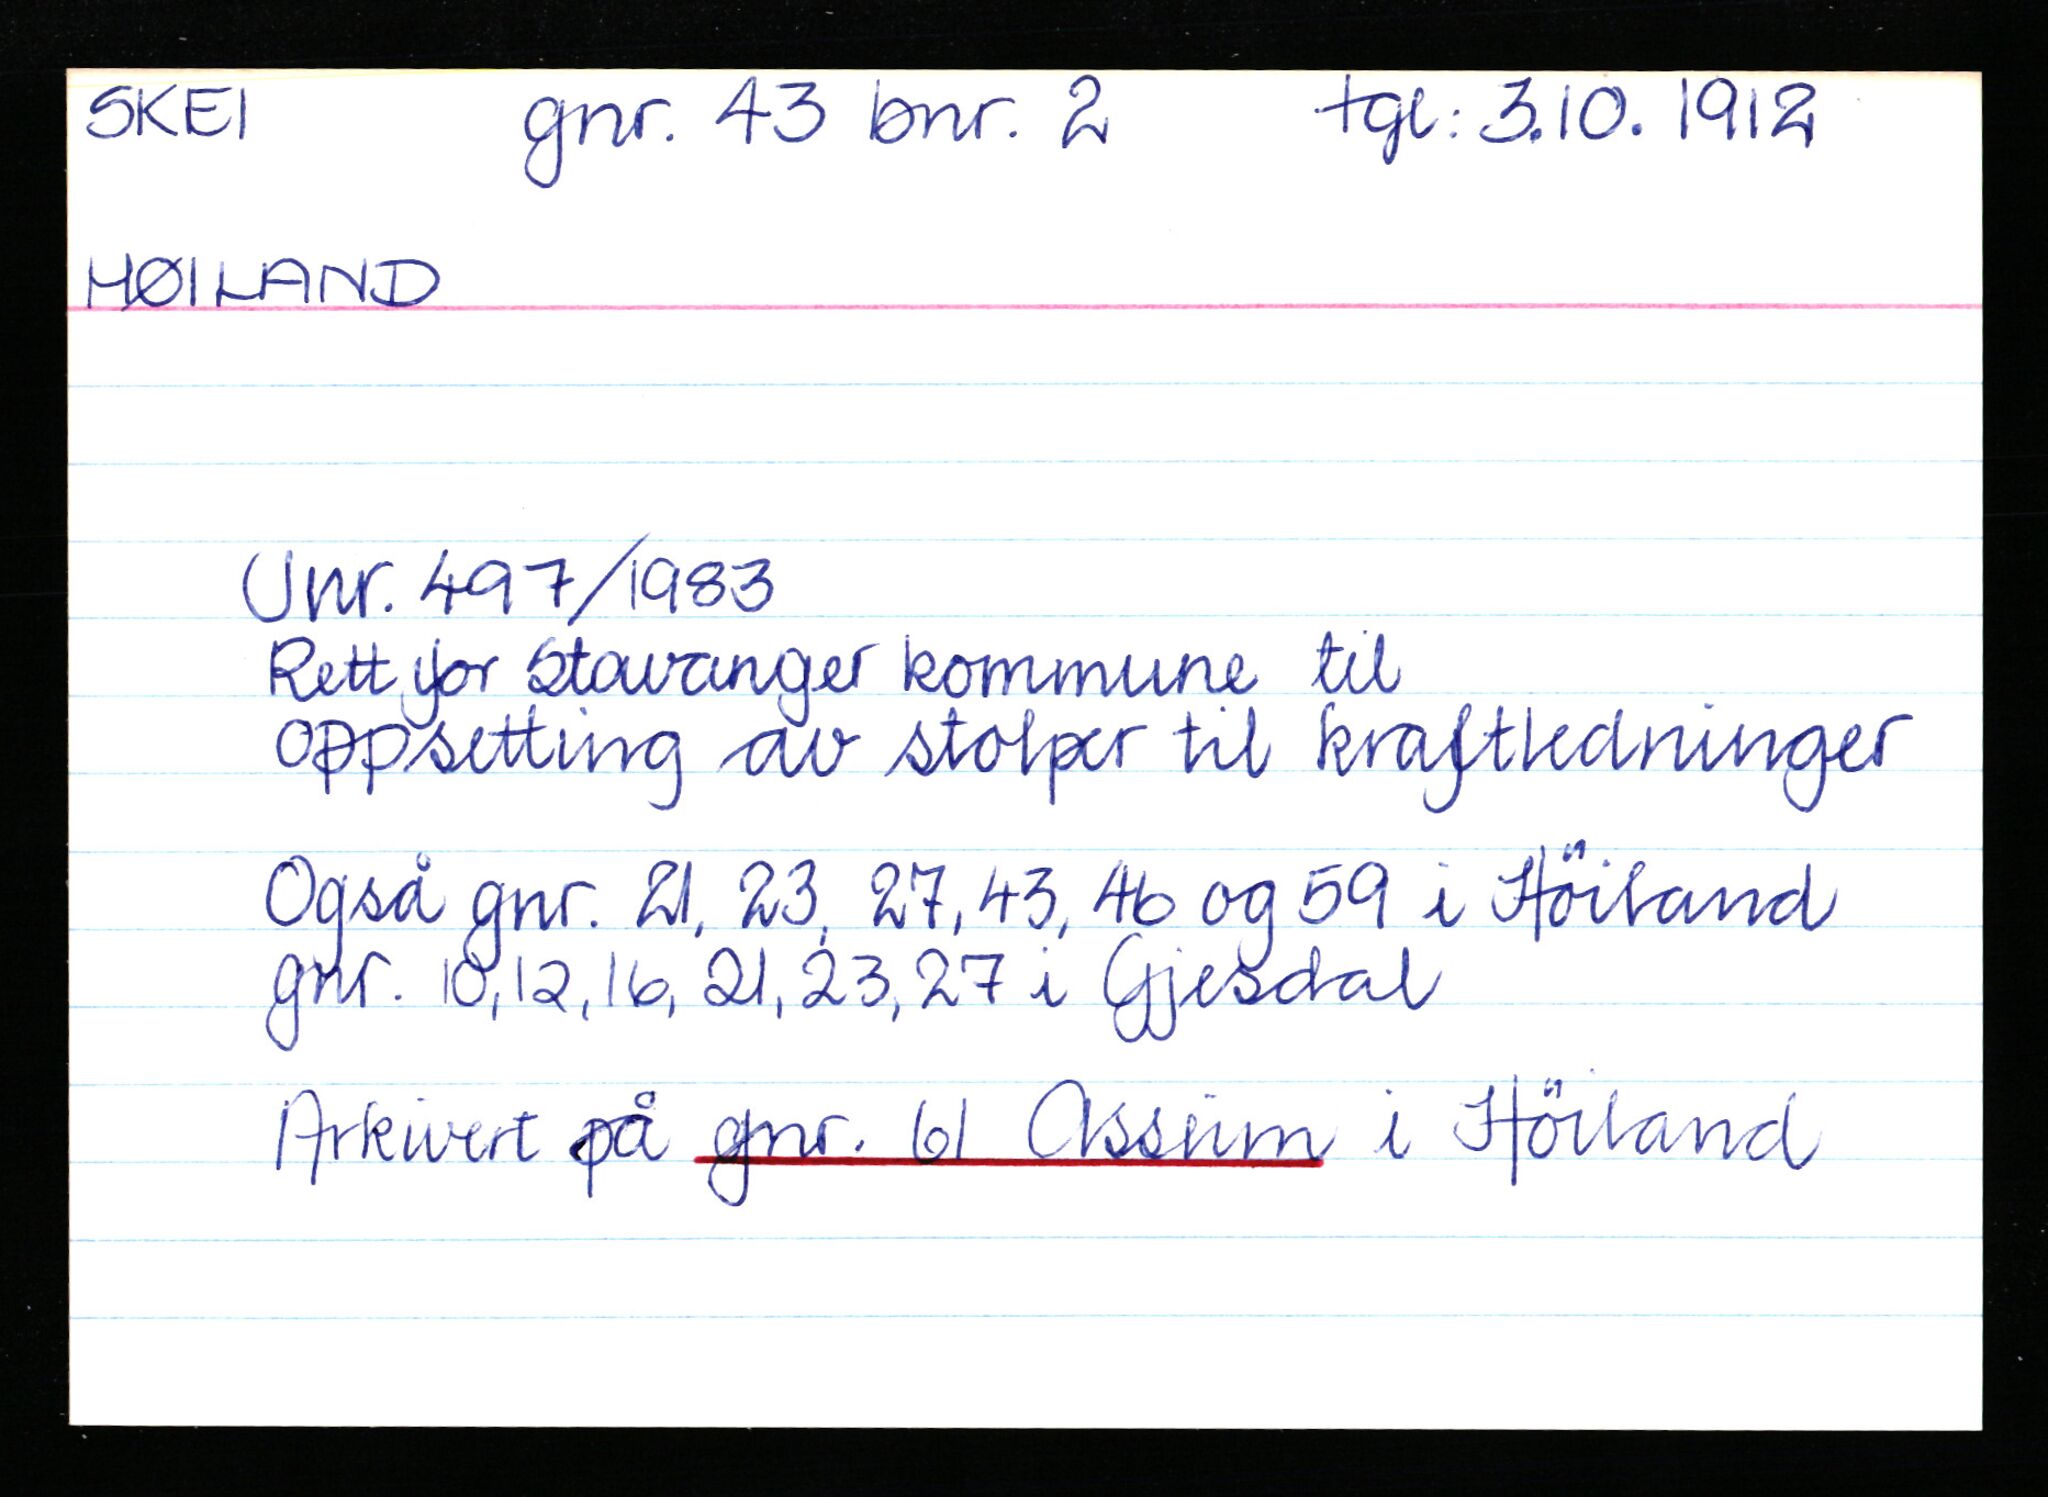 SKEI gnr. 43 bnr. 2 tgl: 3.10. 1912
HØILAND
Unr. 497/1983
Rett for Stavanger kommune til
oppsetting av stolper til kraftledninger
Også gnr. 21, 23, 27, 43, 46 og 59 i Höiland
gnr. 10, 12, 16, 21, 23, 27 i Gjesdal
Arkivert på gnr. 61 Asseim i Höiland